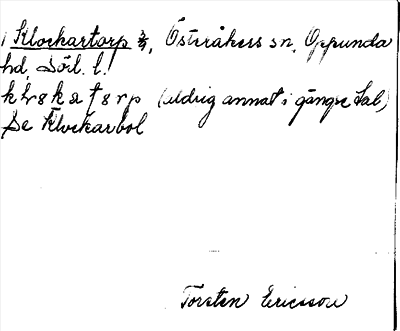 Klockartorp, Österåkers sn, Oppunda
hd, Södl. l.
(aldrig annat i gängse tal)
Se Klockarbol
Torsten Ericsson